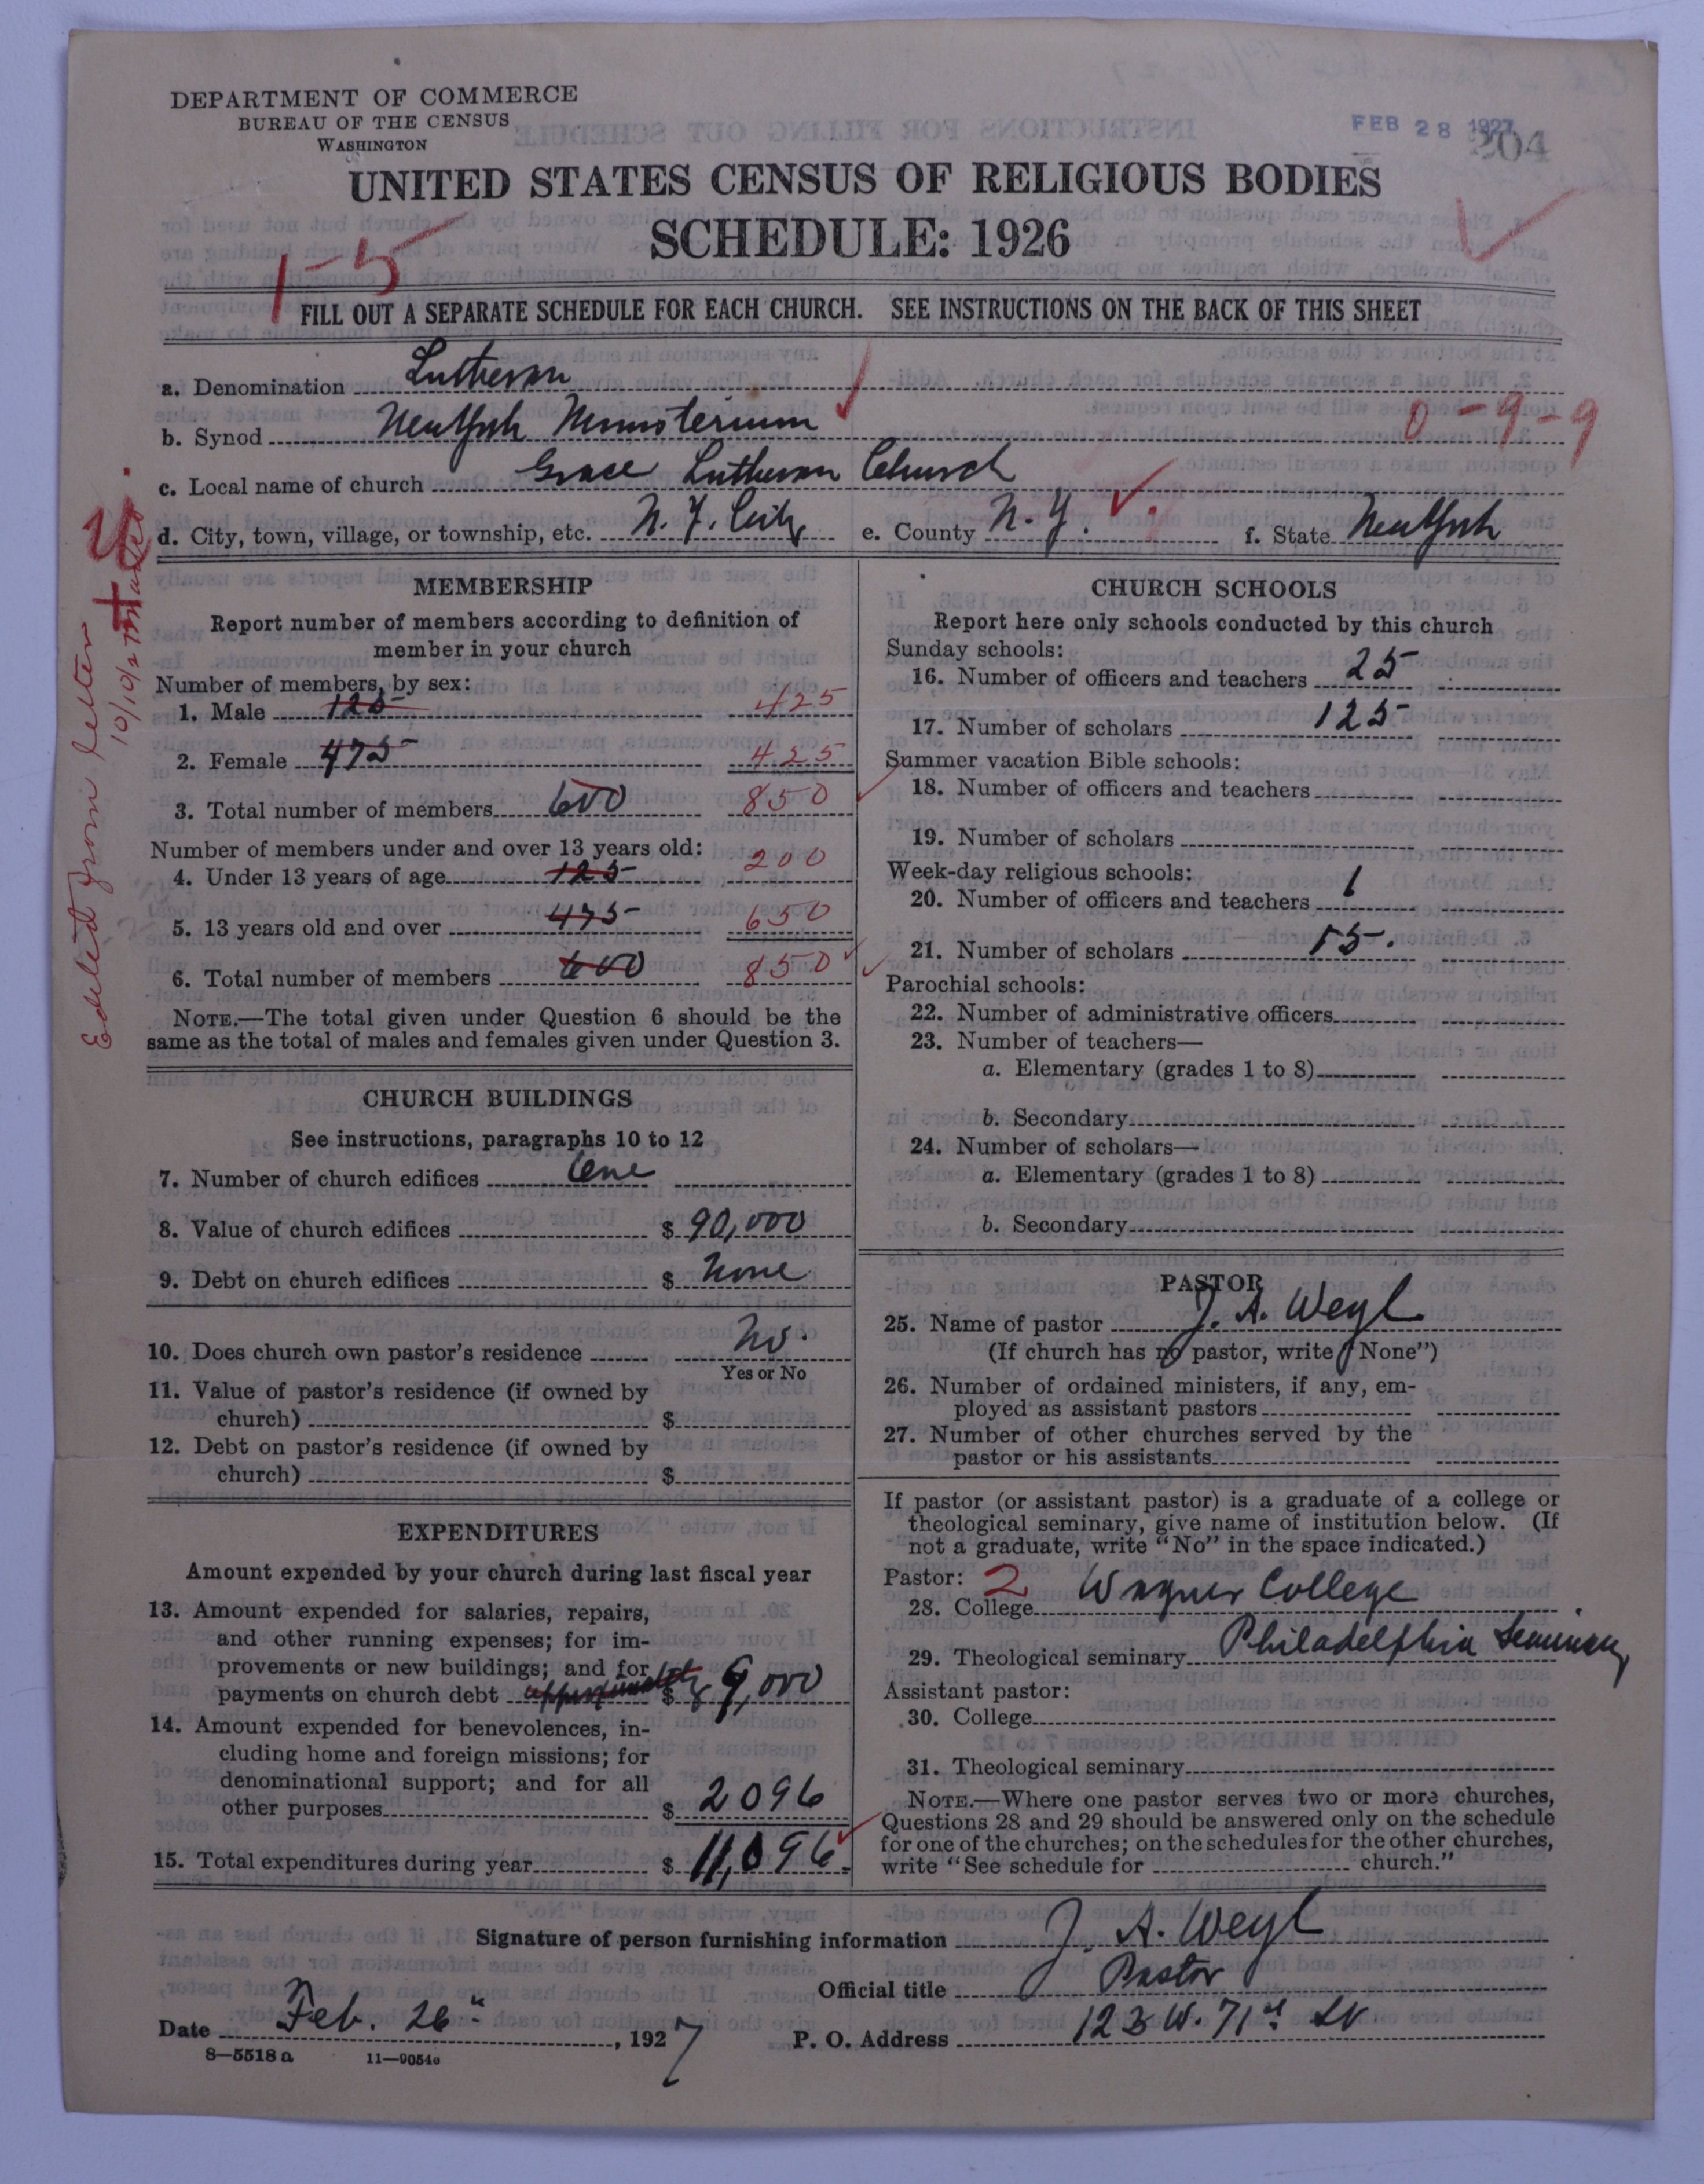 DEPARTMENT OF COMMERCE
BUREAU OF THE CENSUS
WASHINGTON
FEB 28 1927
204
UNITED STATES CENSUS OF RELIGIOUS BODIES
SCHEDULE: 1926
1-5
FILL OUT A SEPARATE SCHEDULE FOR EACH CHURCH. SEE INSTRUCTIONS ON THE BACK OF THIS SHEET
a. Denomination Lutheran
b. Synod New York Ministerium 0-9-9
c. Local name of church Grace Lutheran Church
d. City, town, village, or township, etc. N. Y. City e. County N. Y. f. State New York
Edited from letter
10/10/2
MEMBERSHIP
Report number of members according to definition of
member in your church
Number of members, by sex:
1. Male 125 425
2. Female 475 425
3. Total number of members 600 850
Number of members under and over 13 years old:
4. Under 13 years of age 125 200
5. 13 years old and over 475 650
6. Total number of members 600 850
NOTE.—The total given under Question 6 should be the
same as the total of males and females given under Question 3.
CHURCH BUILDINGS
See instructions, paragraphs 10 to 12
7. Number of church edifices One
8. Value of church edifices $ 90,000
9. Debt on church edifices $ None
10. Does church own pastor's residence No.
Yes or No
11. Value of pastor's residence (if owned by
church) $
12. Debt on pastor's residence (if owned by
church) $
EXPENDITURES
Amount expended by your church during last fiscal year
13. Amount expended for salaries, repairs,
and other running expenses; for im-
provements or new buildings; and for
payments on church debt approximately $ 9,000
14. Amount expended for benevolences, in-
cluding home and foreign missions; for
denominational support; and for all
other purposes $ 2096
15. Total expenditures during year $ 11,096.
CHURCH SCHOOLS
Report here only schools conducted by this church
Sunday schools:
16. Number of officers and teachers 25
17. Number of scholars 125
Summer vacation Bible schools:
18. Number of officers and teachers
19. Number of scholars
Week-day religious schools:
20. Number of officers and teachers 1
21. Number of scholars 15.
Parochial schools:
22. Number of administrative officers
23. Number of teachers—
a. Elementary (grades 1 to 8)
b. Secondary
24. Number of scholars—
a. Elementary (grades 1 to 8)
b. Secondary
PASTOR
25. Name of pastor J. A. Weyl
(If church has no pastor, write "None")
26. Number of ordained ministers, if any, em-
ployed as assistant pastors
27. Number of other churches served by the
pastor or his assistants
If pastor (or assistant pastor) is a graduate of a college or
theological seminary, give name of institution below. (If
not a graduate, write "No" in the space indicated.)
Pastor: 2
28. College Wagner College
29. Theological seminary Philadelphia Seminary
Assistant pastor:
30. College
31. Theological seminary
NOTE.—Where one pastor serves two or more churches,
Questions 28 and 29 should be answered only on the schedule
for one of the churches; on the schedules for the other churches,
write "See schedule for church."
Signature of person furnishing information J. A. Weyl
Official title Pastor
Date Feb. 26th, 1927 P. O. Address 123 W. 71st St.
8—5518 a 11—9054a